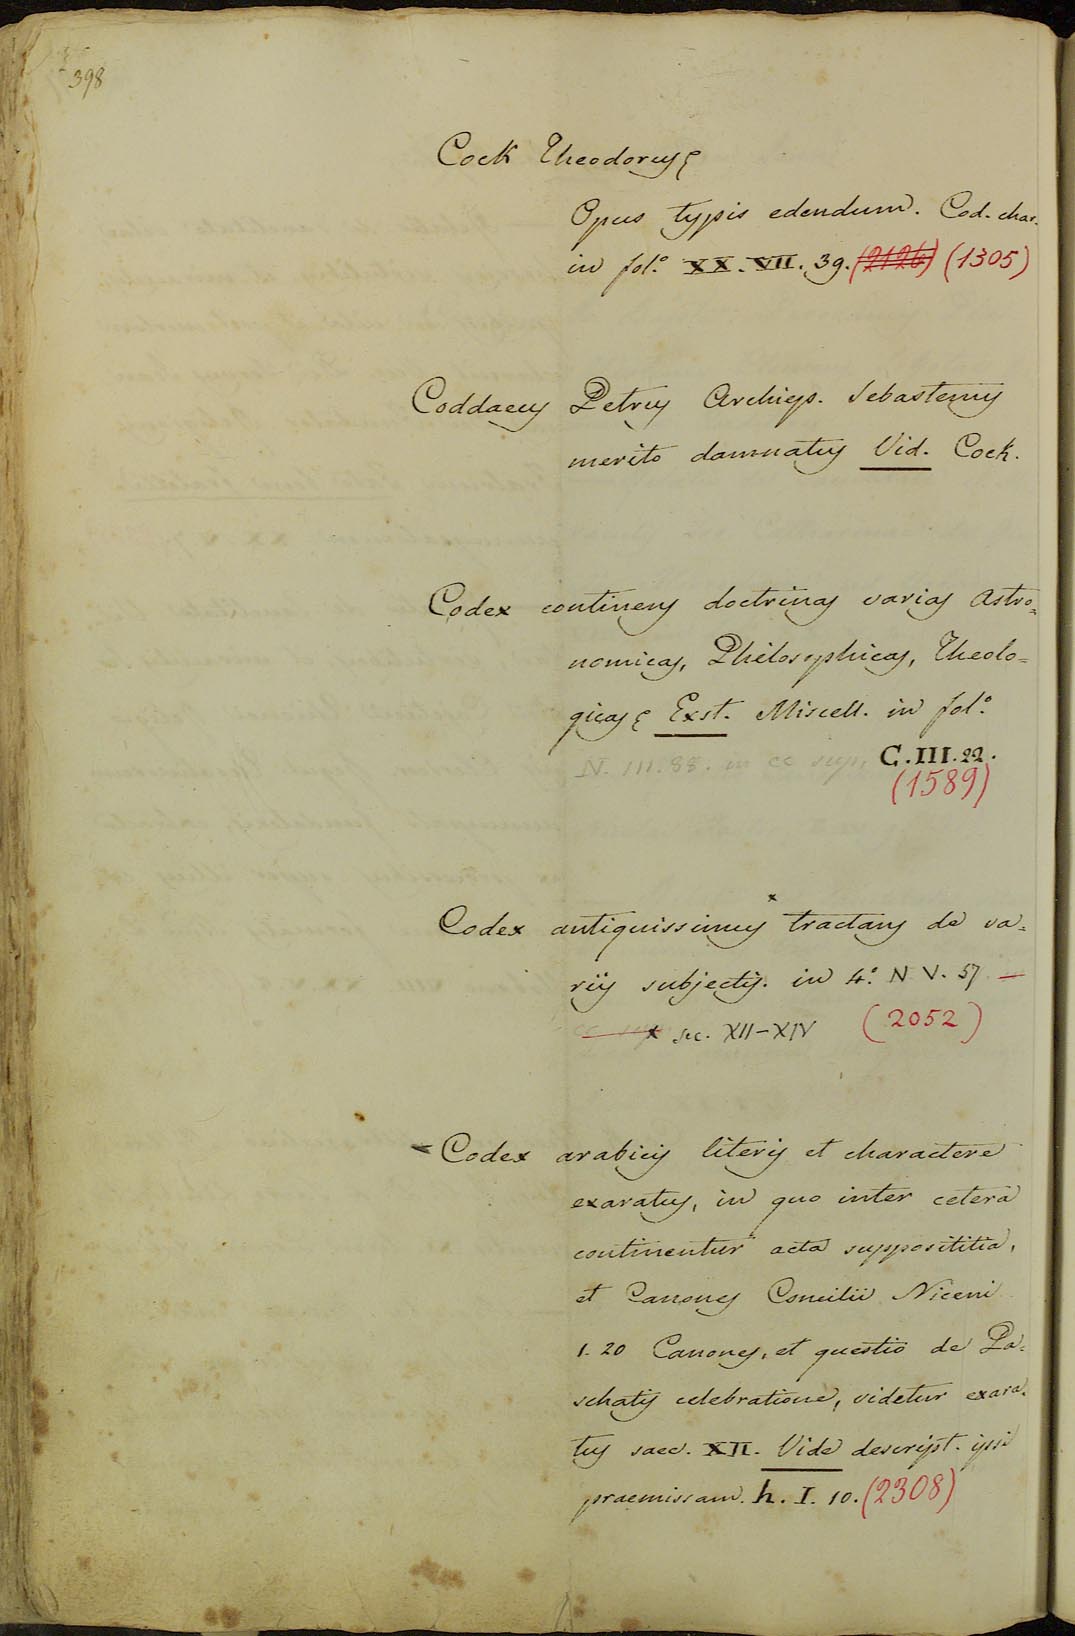 398
Cock Theodorus
Opus typis edendum. Cod. char.
in fol.º XX. VII. 39. (2126) (1305)
Coddaeus Petrus Archieps. Sebastenus
merito damnatus Vid. Cock.
Codex continens doctrinas varias Astro=
nomicas, Philosophicas, Theolo=
gicas Exst. Miscell. in fol.º
N. III. 88. in cc sup. C. III. 22.
(1589)
Codex antiquissimus tractans de va=
riis subjectis. in 4.º N V. 57 —
x sec. XII-XIV (2052)
Codex arabicis literis et charactere
exaratus, in quo inter cetera
continentur acta supposititia,
et Canones Concilii Niceni
1. 20 Canones, et questio de Pa=
schatis celebratione, videtur exara=
tus saec. XII. Vide descript. ipsi
praemissam. h. I. 10. (2308)